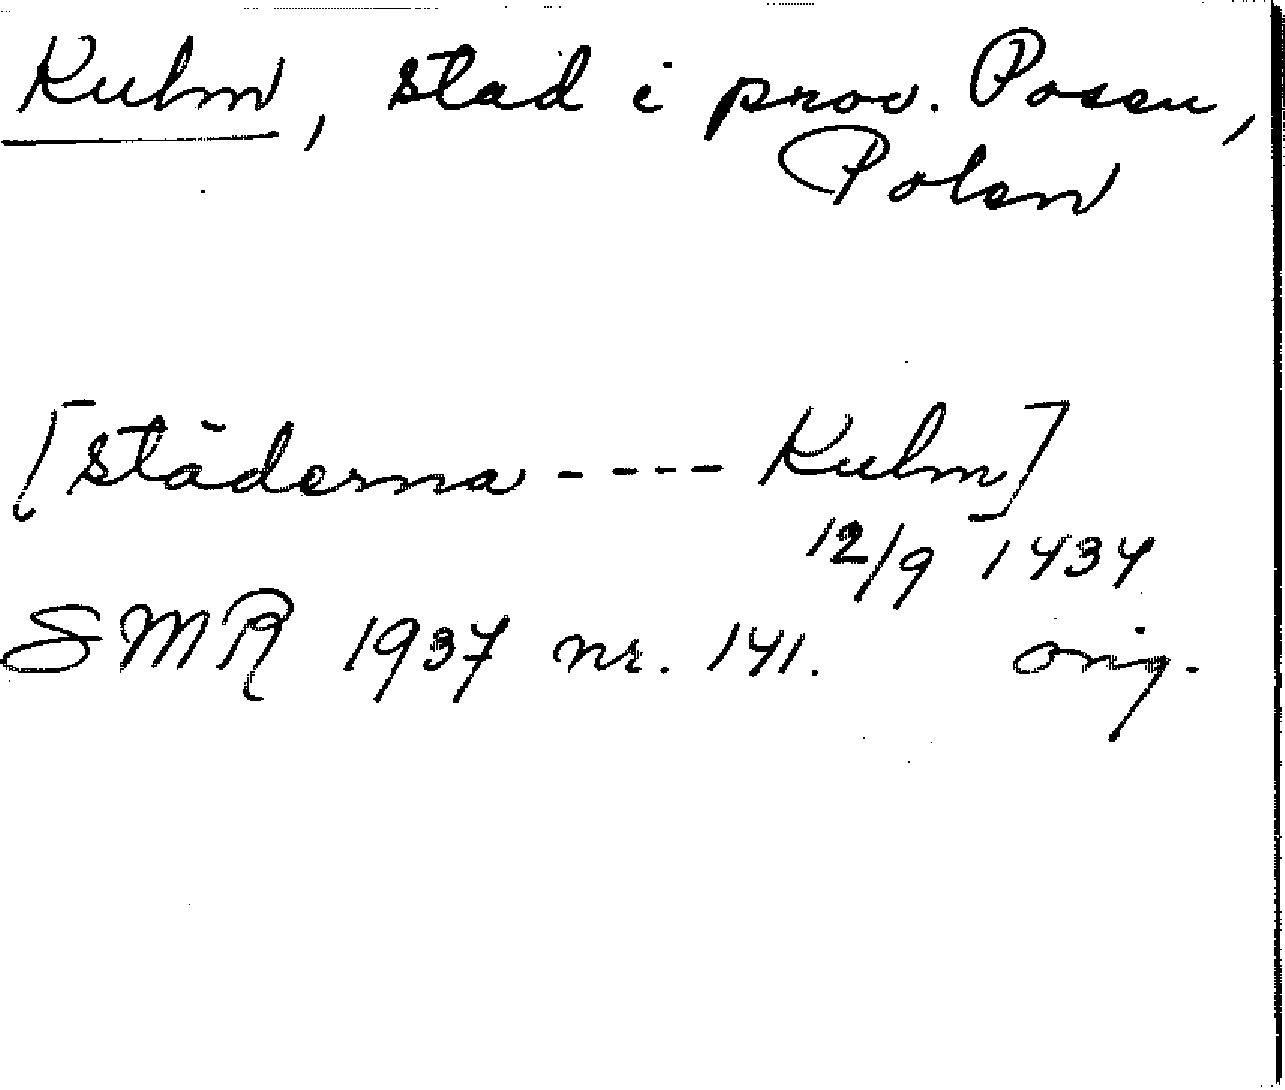 Kulm, stad i prov. Posen,
Polen
[städerna ---- Kulm]
12/9 1434
SMR 1937 nr. 141. orig.